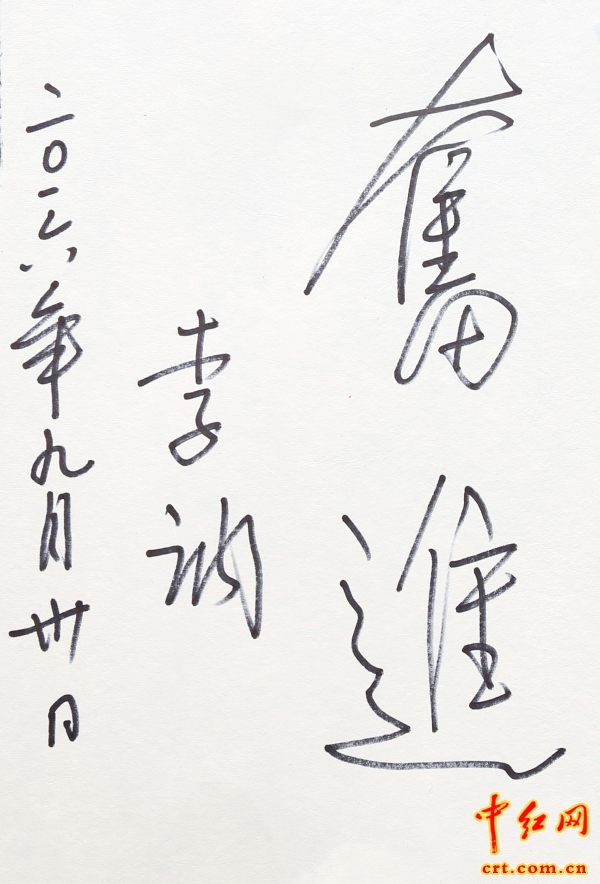 奮進
李讷
二〇一六年九月卅日
中红网
crt.com.cn